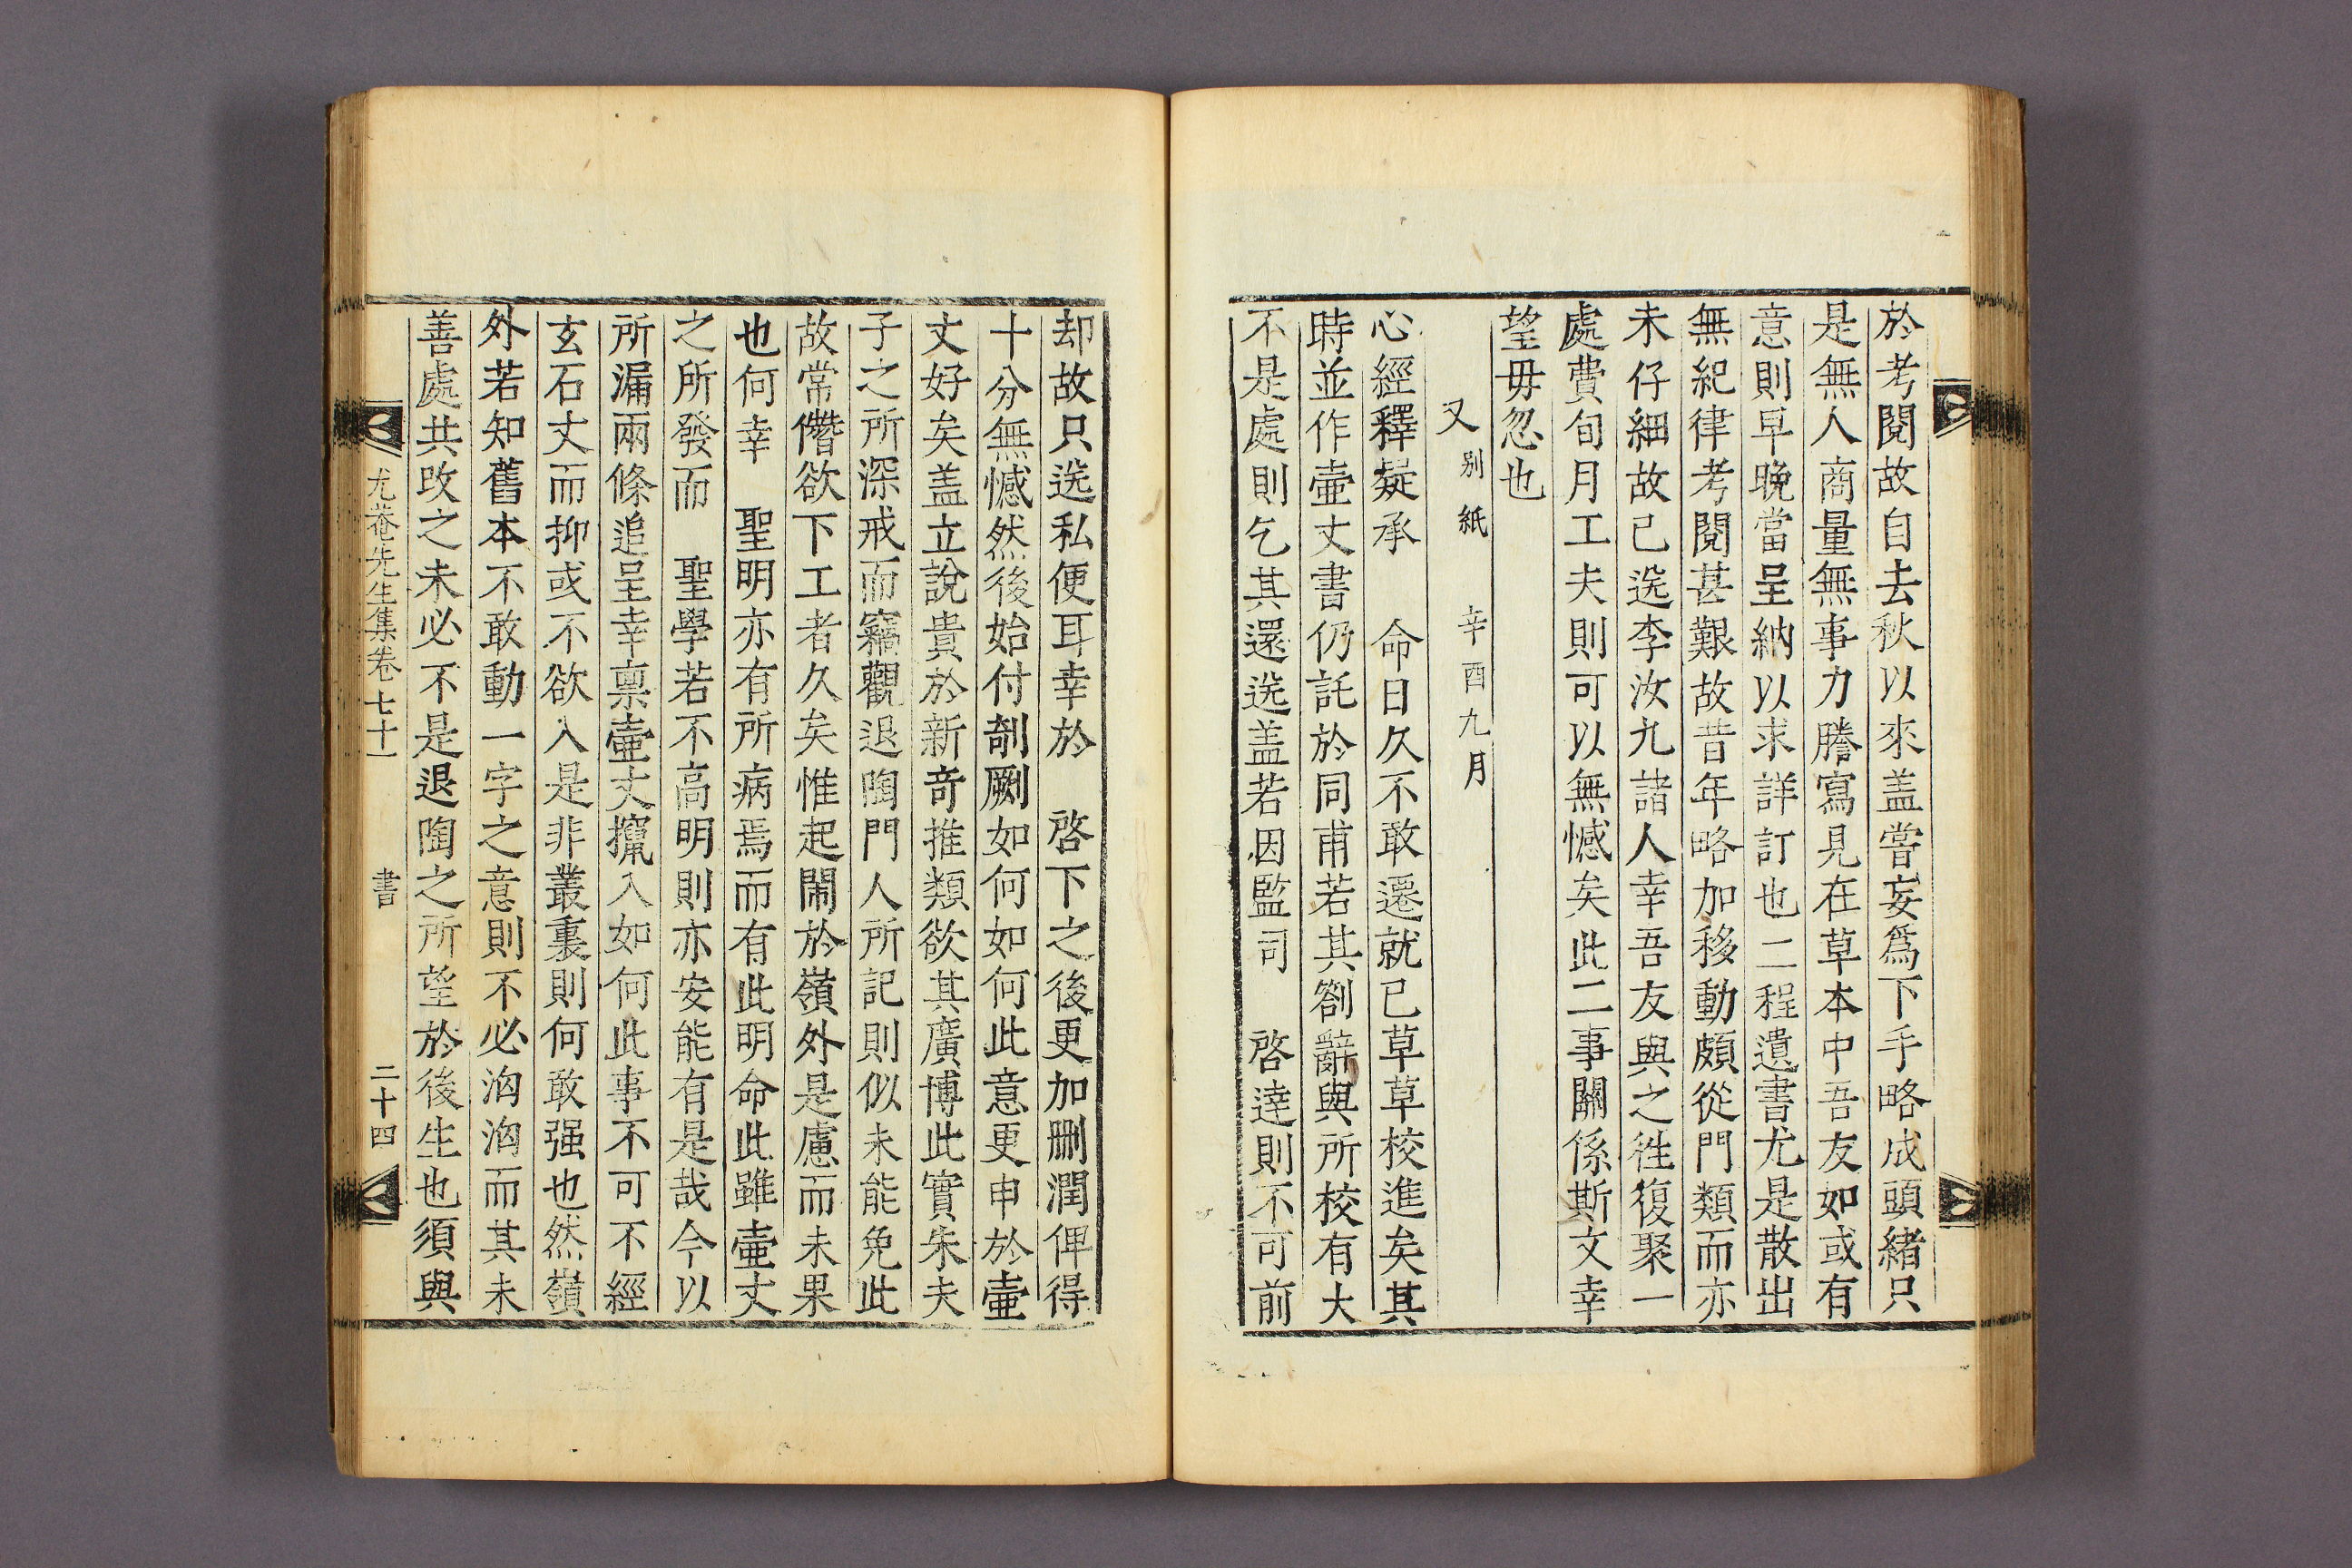 於考閱故自去秋以來盖嘗妄爲下手略成頭緒只
是無人商量無事力謄寫見在草本中吾友如或有
意則早晩當呈納以求詳訂也二程遺書尤是散出
無紀律考閱甚艱故昔年略加移動頗從門類而亦
未仔細故已送李汝九諸人幸吾友與之徃復聚一
處費旬月工夫則可以無憾矣此二事關係斯文幸
望毋忽也
又別紙 辛酉九月
心經釋疑承 命日久不敢遷就已草草校進矣其
時並作壷丈書仍託於同甫若其劄辭與所校有大
不是處則乞其還送盖若因監司 啓達則不可前
却故只送私便耳幸於 啓下之後更加刪潤俾得
十分無憾然後始付剞劂如何如何此意更申於壷
丈好矣盖立說貴於新奇推類欲其廣博此實朱夫
子之所深戒而竊觀退陶門人所記則似未能免此
故常僭欲下工者久矣惟起鬧於嶺外是慮而未果
也何幸 聖明亦有所病焉而有此明命此雖壷丈
之所發而 聖學若不高明則亦安能有是哉今以
所漏兩條追呈幸禀壷丈攛入如何此事不可不經
玄石丈而抑或不欲入是非叢裏則何敢强也然嶺
外若知舊本不敢動一字之意則不必洶洶而其未
善處共改之未必不是退陶之所望於後生也須與
尤菴先生集卷七十一 書 二十四